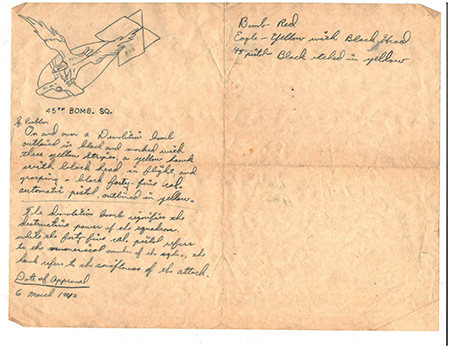 45TH BOMB. SQ.
On and over a Demolition bomb
outlined in black and marked with
three yellow stripes, a yellow hawk
with black head, in flight, and
grasping a black forty-five cal.
automatic pistol, outlined in yellow.
The demolition bomb signifies the
destructive power of the squadron,
while the forty-five cal. pistol refers
to the numerical number of the sqdn., the
hawk refers to the swiftness of the attack.
Date of Approval
6 March 1942
Bomb - Red
Eagle - Yellow with Black Head
45 pistol - Black etched in yellow